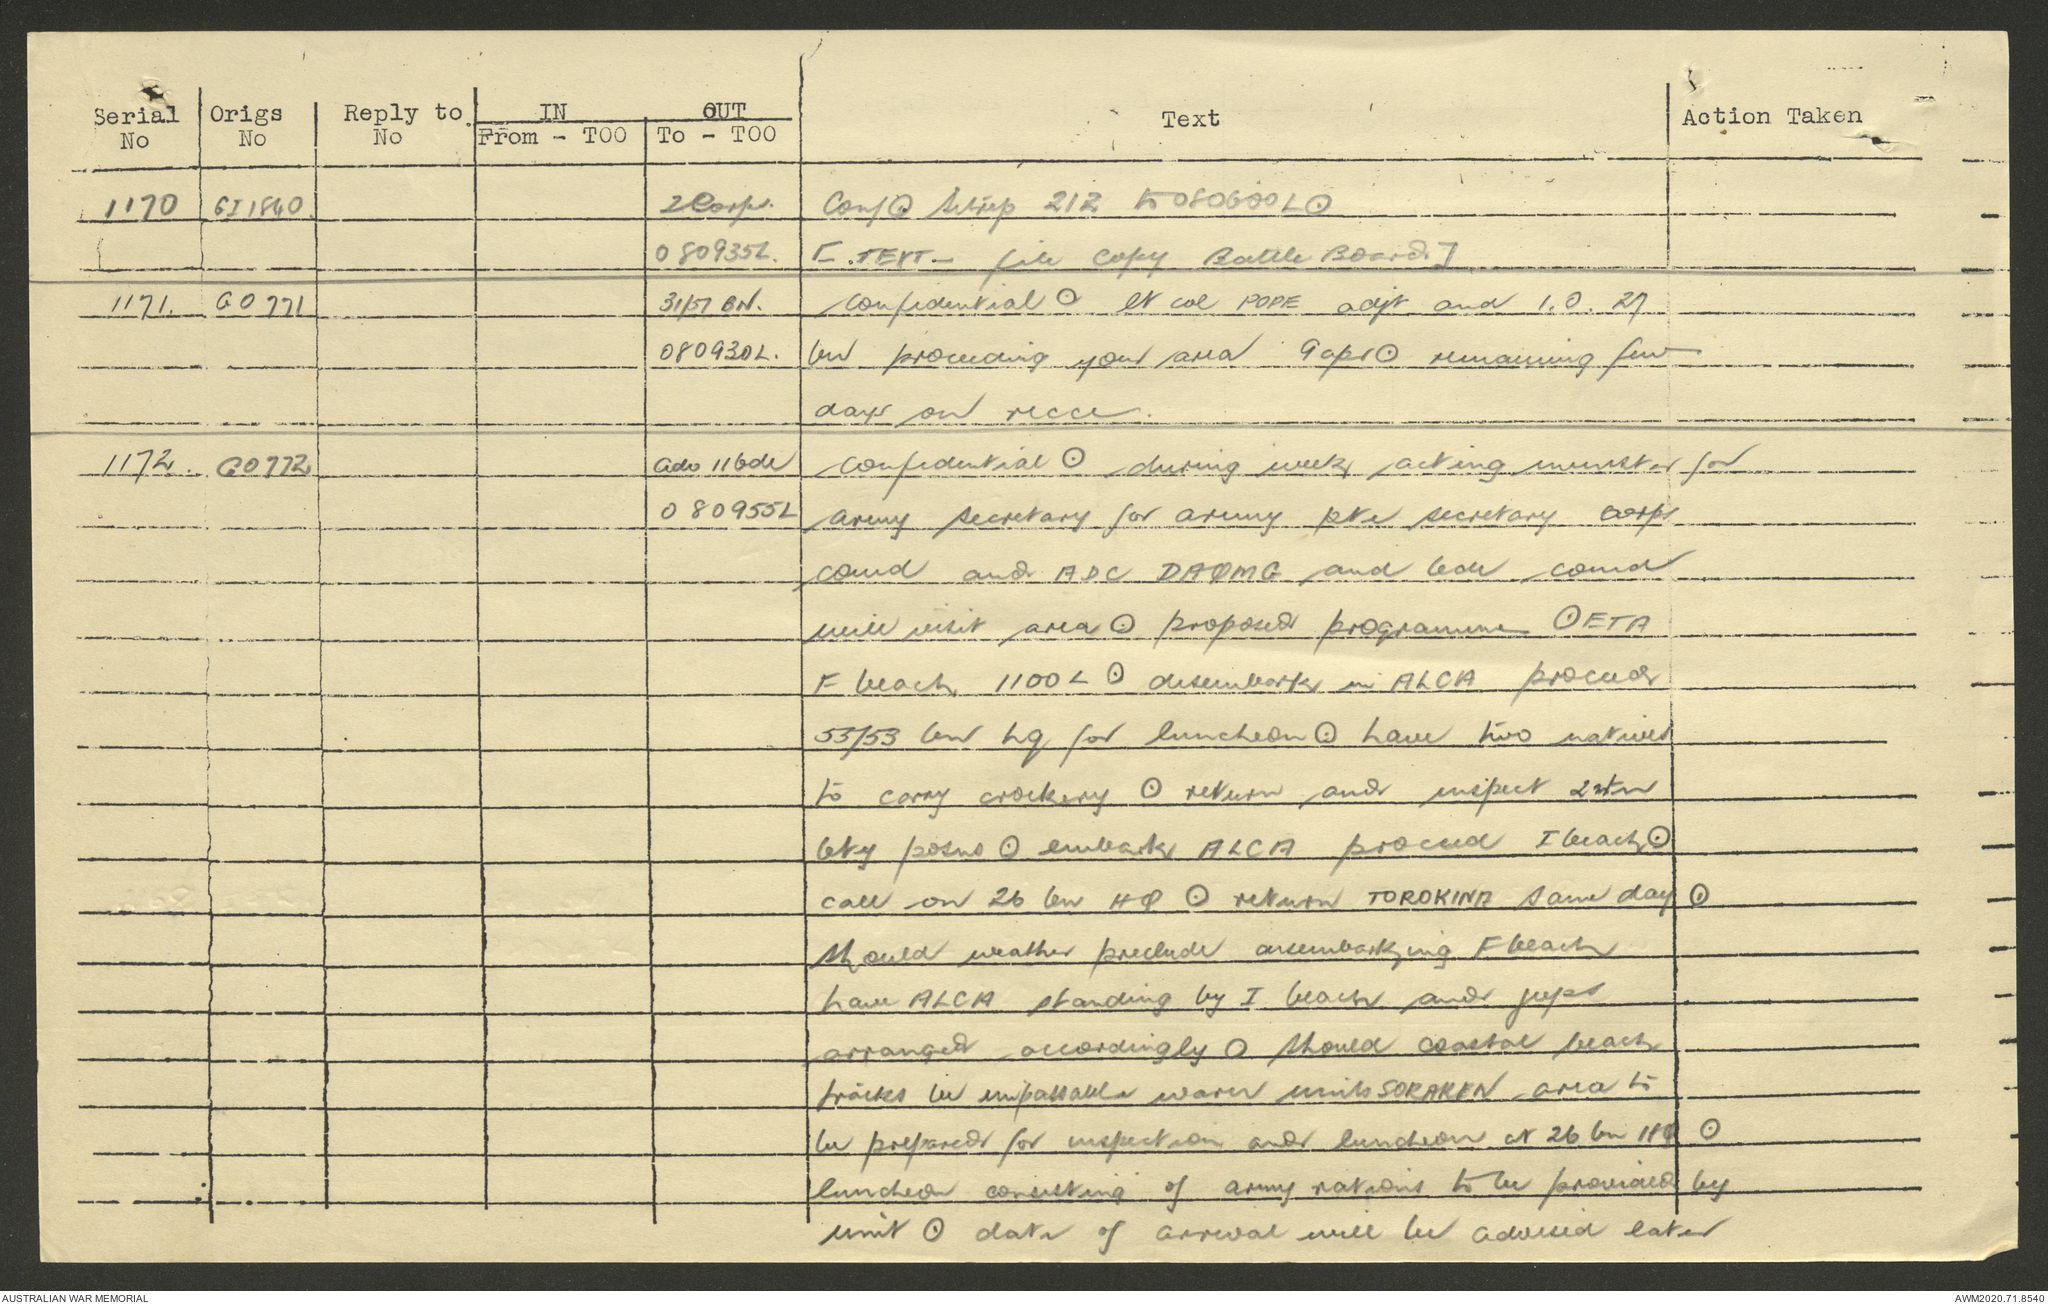 Serial No | Origs No | Reply to No | IN From - TOO | OUT To - TOO | Text | Action Taken
1170 GI1840 2Corps. Conf ⊙ Sitrep 212 to 080600L ⊙
080935L. [-TEXT- file copy Battle Board.]
1171. GO771 31/51 BN. Confidential ⊙ lt col POPE adjt and I.O. 27
080930L. bn proceeding your area 9 apr ⊙ remaining few
days on recce.
1172. GO772 Adv 11 bde Confidential ⊙ during week acting minister for
080955L army secretary for army pte secretary corps
comd and ADC DAQMG and bde comd
will visit area ⊙ proposed programme ⊙ ETA
F beach 1100L ⊙ disembark in ALCA proceed
55/53 bn hq for luncheon ⊙ have two natives
to carry crockery ⊙ return and inspect 2 mtn
bty posns ⊙ embark ALCA proceed I beach ⊙
call on 26 bn HQ ⊙ return TOROKINA same day ⊙
should weather preclude disembarking F beach
have ALCA standing by I beach and jeeps
arranged accordingly ⊙ should coastal beach
tracks be impassable warn units SORAKEN area to
be prepared for inspection and luncheon at 26 bn HQ ⊙
luncheon consisting of army rations to be provided by
unit ⊙ date of arrival will be advised later
AUSTRALIAN WAR MEMORIAL
AWM2020.71.8540